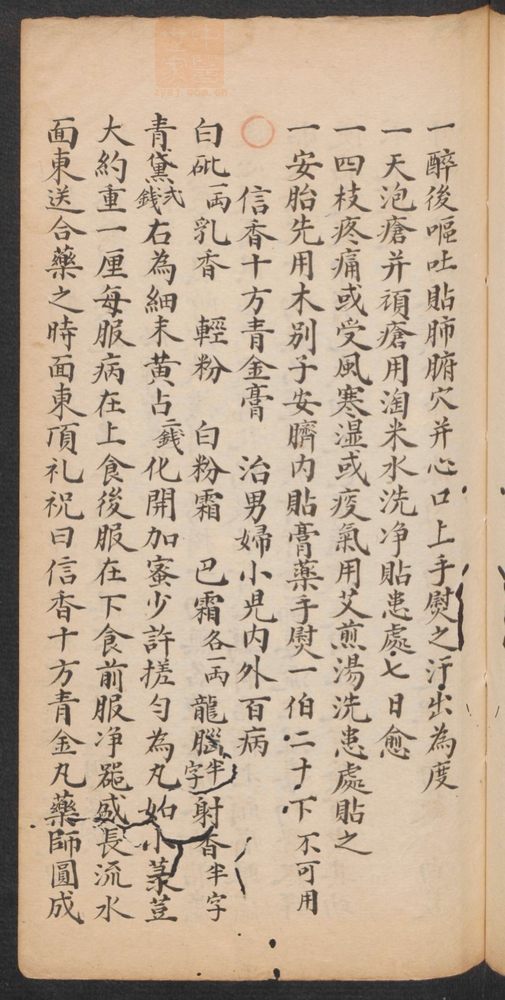 一醉後嘔吐貼肺腑穴并心口上手熨之汗出為度
一天泡瘡并頑瘡用淘米水洗净貼患處七日愈
一四枝疼痛或受風寒湿或疫氣用艾煎湯洗患處貼之
一安胎先用木別子安臍内貼膏藥手熨一伯二十下不可用
信香十方青金膏 治男婦小児内外百病
白砒一両乳香 輕粉 白粉霜 巴霜各一両龍腦半字射香半字
青黛弍錢右為細末黄占二錢化開加蜜少許搓匀為丸如小菉荳
大約重一厘每服病在上食後服在下食前服净器盛長流水
面東送合藥之時面東頂礼祝曰信香十方青金丸藥師圓成